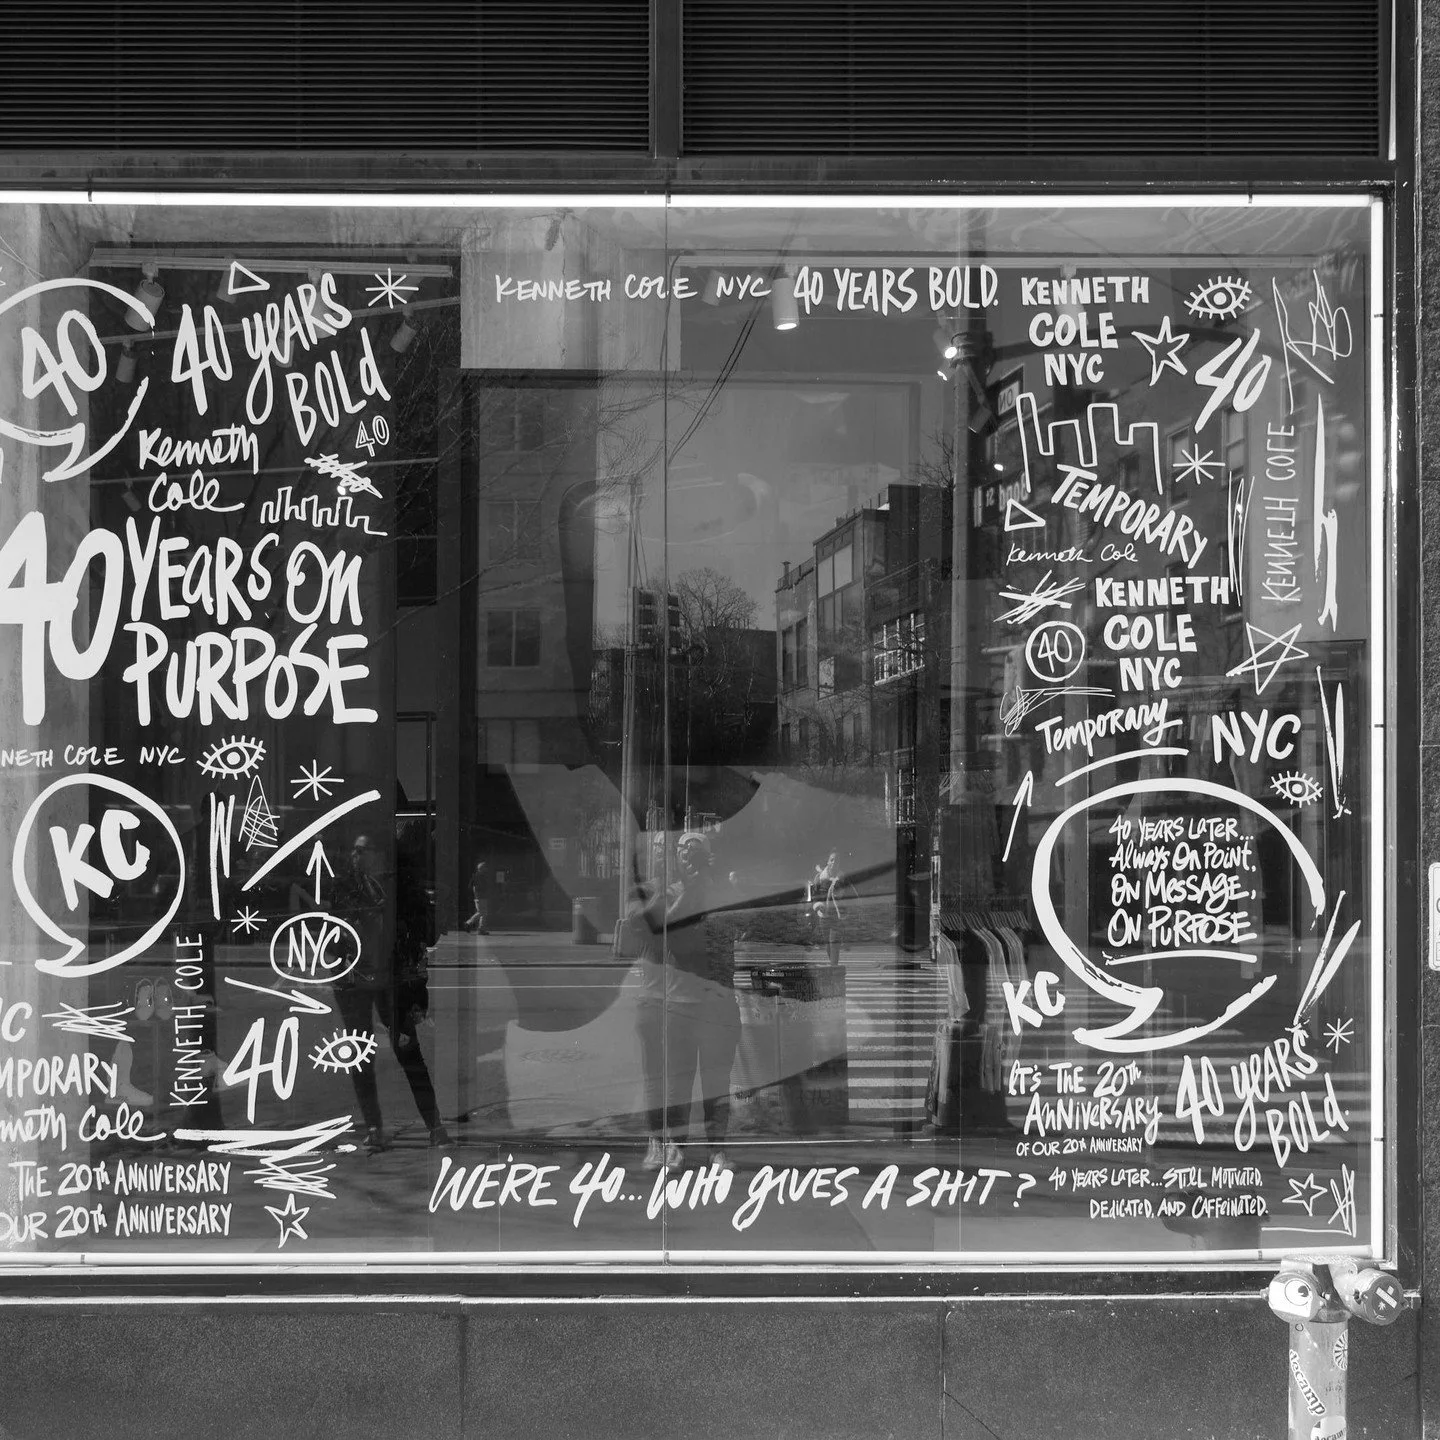 40
40 YEARS
BOLD
40
Kenneth
Cole
40 YEARS ON
PURPOSE
NETH COLE NYC
KC
NYC
KENNETH COLE
40
C
MPORARY
neth Cole
THE 20TH ANNIVERSARY
OUR 20TH ANNIVERSARY
KENNETH COLE NYC 40 YEARS BOLD.
WE'RE 40... WHO GIVES A SHIT?
KENNETH
COLE
NYC
40
KENNETH COLE
TEMPORARY
Kenneth Cole
KENNETH
COLE
NYC
40
Temporary
NYC
40 YEARS LATER...
Always On Point,
ON MESSAGE,
ON PURPOSE
KC
IT'S THE 20th
ANNIVERSARY
OF OUR 20TH ANNIVERSARY
40 YEARS
BOLD.
40 YEARS LATER... STILL MOTIVATED,
DEDICATED, AND CAFFEINATED.